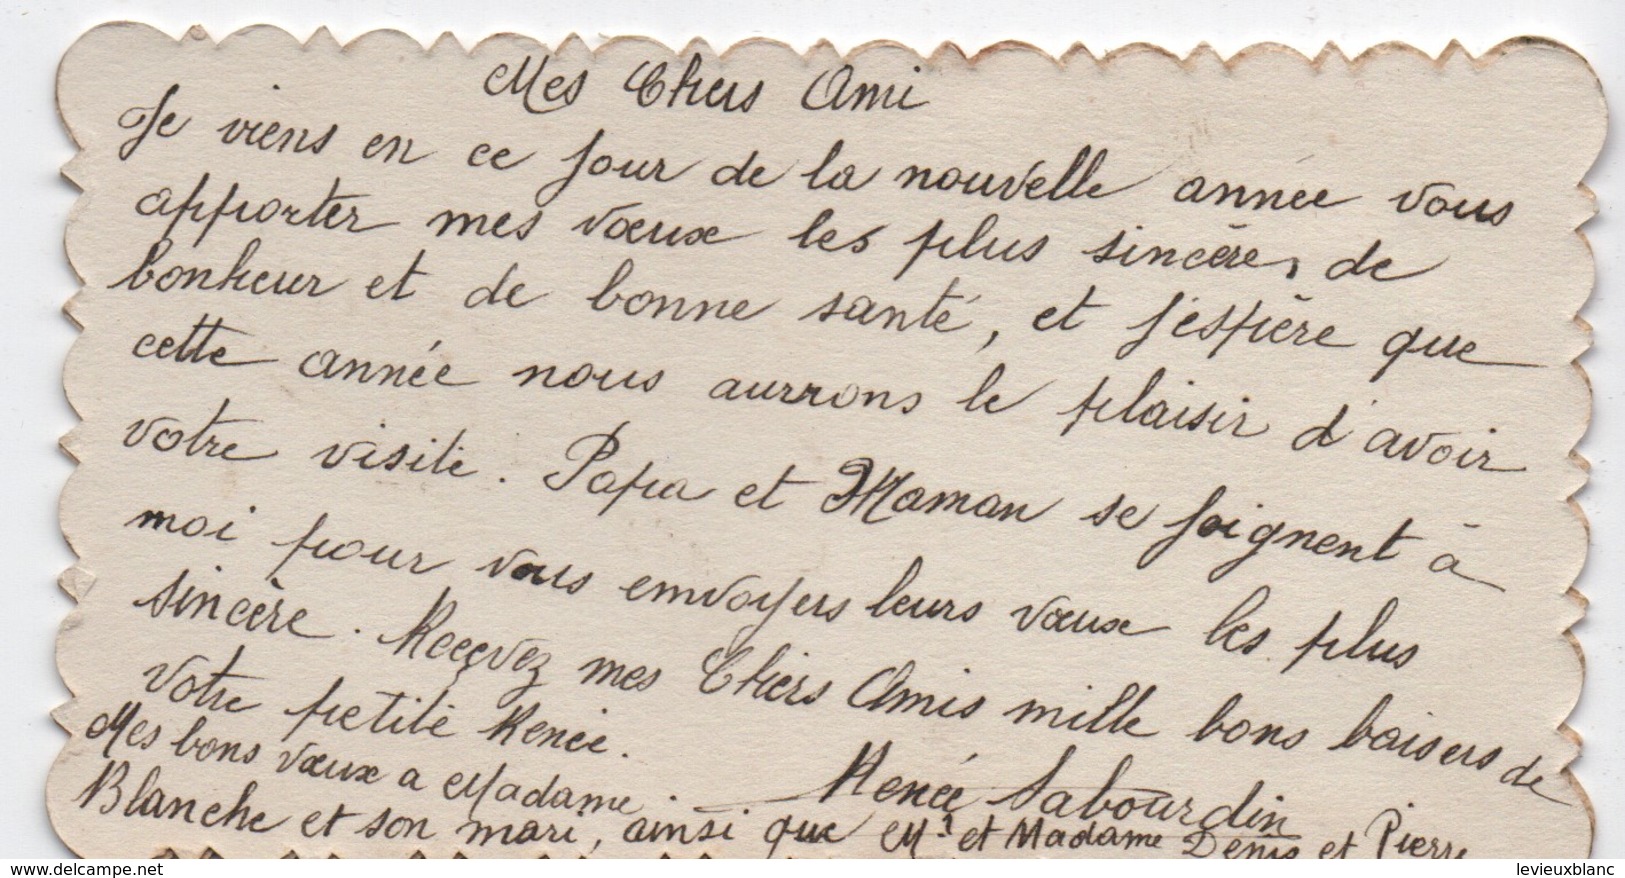 Mes Chers Ami
Je viens en ce jour de la nouvelle année vous
apporter mes vœux les plus sincère, de
bonheur et de bonne santé, et j'éspère que
cette année nous aurrons le plaisir d'avoir
votre visite. Papa et Maman se joignent à
moi pour vous envoyers leurs vœux les plus
sincère. Reçevez mes Chers Amis mille bons baisers de
votre petite Renée.
Renée Sabourdin
Mes bons vœux a Madame
Blanche et son mari, ainsi que Mr et Madame Denis et Pierre
Delcampe.net
levieuxblanc